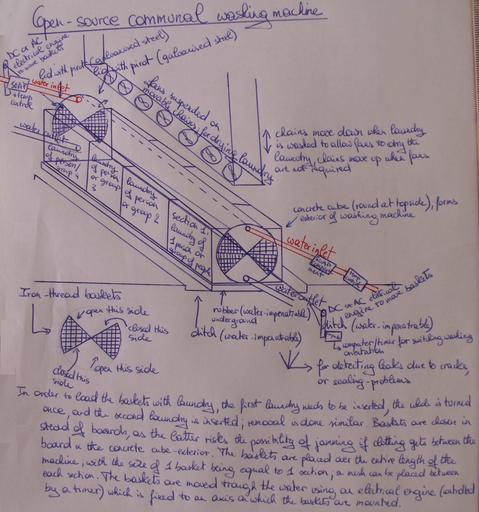 Open-source communal washing machine
DC or AC
electrical
engine
to move baskets
lid with pivot (galvanised steel)
lid with pivot (galvanised steel)
water inlet
fans suspended on
movable chains for drying laundry
water outlet
laundry
of person
or group 4
laundry
of person
or group
3
laundry
of person
or group 2
section 1:
laundry of
1 person or
group of people
chains move down when laundry
is washed to allow fans to dry the
laundry, chains move up when fans
are not required
concrete cube (round at topside), forms
exterior of washing machine
water inlet
water outlet
DC or AC electrical
engine to move baskets
rubber (water-impenetrable)
underground
ditch (water-impenetrable)
ditch (water-impenetrable)
computer/timer for switching washing
orientation
for detecting leaks due to cracks,
or sealing-problems
Iron-thread baskets
open this side
closed this
side
open this side
closed this
side
In order to load the baskets with laundry, the first laundry needs to be inserted, the whole is turned
once, and the second laundry is inserted; removal is done similar. Baskets are chosen in
stead of boards, as the latter risks the possibility of jamming if clothing gets between the
board & the concrete cube-exterior. The baskets are placed over the entire length of the
machine, with the size of 1 basket being equal to 1 section, a mesh can be placed between
each section. The baskets are moved trough the water using an electrical engine (controlled
by a timer) which is fixed to an axis on which the baskets are mounted.